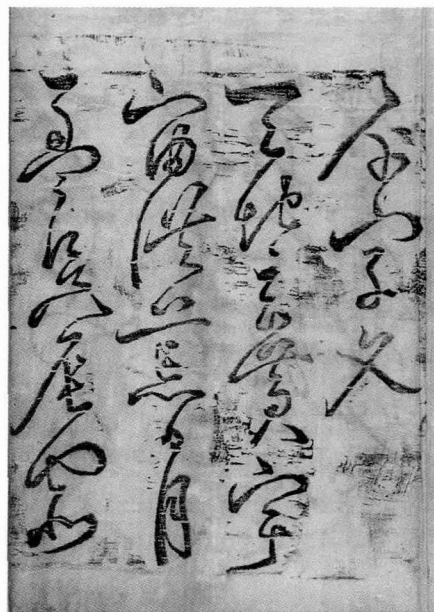 字文
天地玄黃宇
宙洪荒日月
盈昃辰宿列